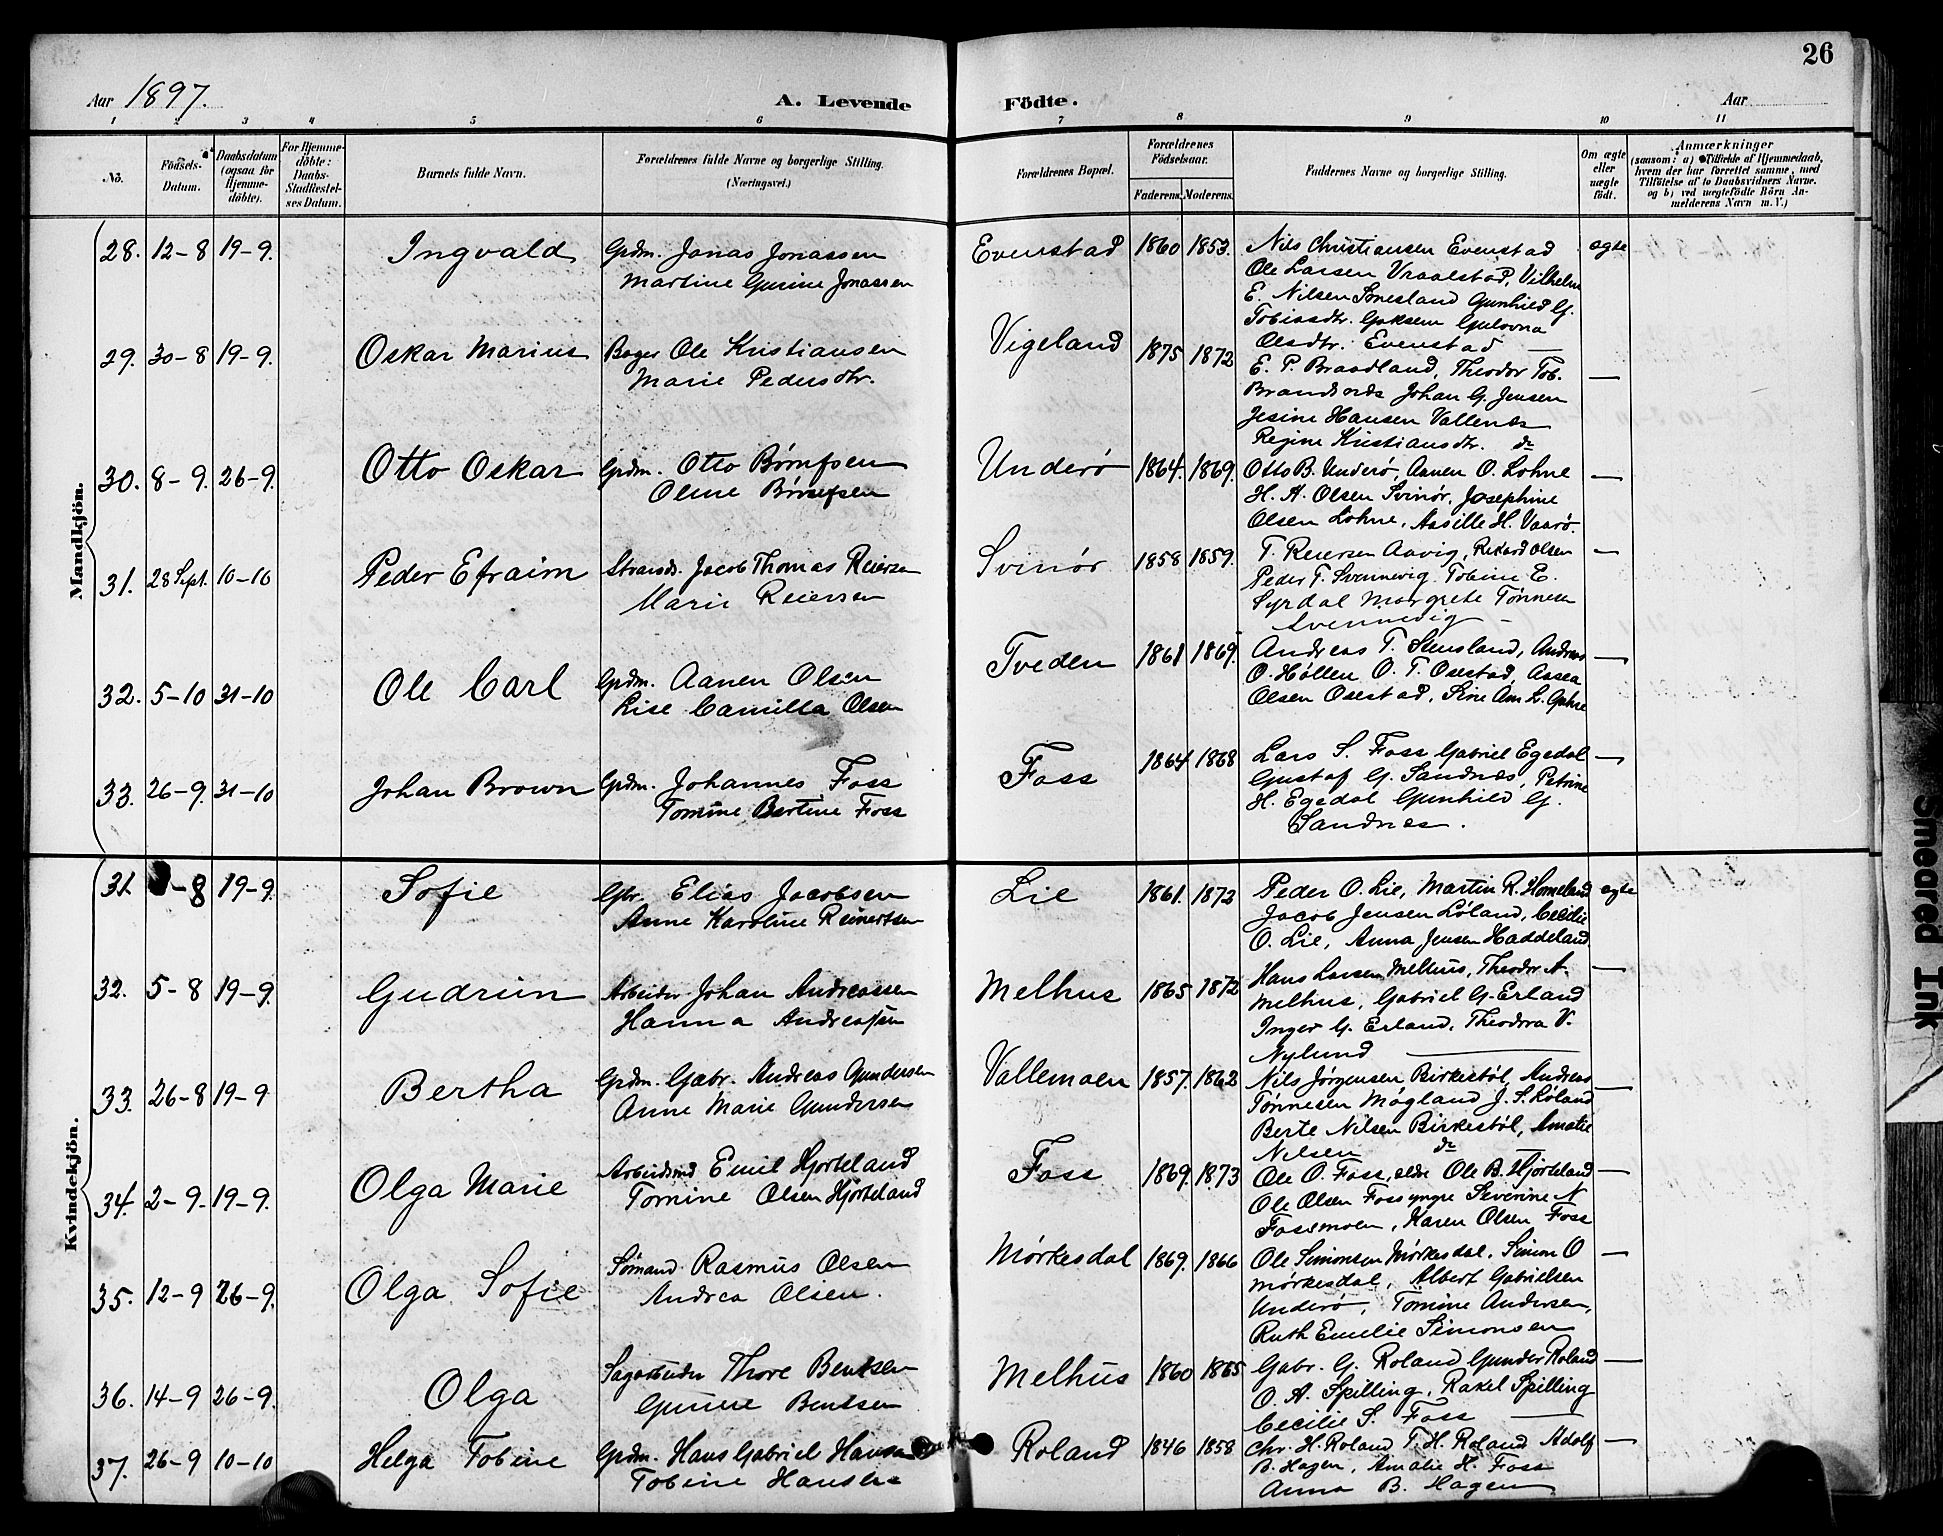 26
Aar 1897.
A. Levende
Födte.
Aar
1 2 3 4 5 6 7 8 9 10 11
No.
Födsels-Datum.
Daabsdatum (ogsaa for Hjemme-döbte).
For Hjemme-döbte: Daabs-Stadfæstel-ses Datum.
Barnets fulde Navn.
Forældrenes fulde Navne og borgerlige Stilling. (Næringsvei.)
Forældrenes Bopæl.
Forældrenes Födselsaar.
Faderens. Moderens.
Faddernes Navne og borgerlige Stilling.
Om ægte eller uægte födt.
Anmærkninger (saasom: a) Tilfælde af Hjemmedaab, hvem der har forrettet samme, med Tilföielse af to Daabsvidners Navne. og b) ved uægtefödte Börn An-melderens Navn m. V.)
Mandkjön.
28. 12-8 19-9. Ingvald Grdm. Jonas Jonassen
Martine Gurine Jonassen
Evenstad 1860 1853. Nils Christiansen Evenstad ægte
Ole Larsen Vraalstad, Vilhelm
E. Nilsen Sønesland Gunhild G.
Tobiasdtr. Goksem Gulovna
Olsdtr. Evenstad —
29. 30-8 19-9. Oskar Marius Bager Ole Kristiansen
Marie Pedersdtr.
Vigeland 1875 1872 E. P. Braadland, Theodor Tob. —
Brandsvold Johan G. Jensen
Jesine Hansen Vallenes
Regine Kristiansdtr. do
30. 8-9. 26-9. Otto Oskar Grdm. Otto Børufsen
Oline Børufsen
Underö 1864. 1869. Otto B. Underö, Aanen O. Lohne —
H. A. Olsen Svinör, Josephine
Olsen Lohne, Aasille H. Vaarö.
31. 28 Sept. 10-10 Peder Efraim Strands. Jacob Thomas Reiersen
Marie Reiersen
Svinör 1858 1859. T. Reiersen Aavig, Rikard Olsen —
Peder T. Svennevig. Tobine E.
Syrdal Margrete Tönnesen
Svennevig —
32. 5-10 31-10 Ole Carl Grdm. Aanen Olsen
Lise Camilla Olsen
Tveden 1861 1869. Andreas T. Stensland, Andreas —
O. Höllen O. T. Osestad, Aasea
Olsen Osestad, Sine Am. L. Gahre
33. 26-9. 31-10 Johan Brown Grdm. Johannes Foss
Tomine Bertine Foss
Foss 1864 1868 Lars S. Foss Gabriel Egedal —
Gustaf G. Sandnes, Petrine
H. Egedal Gunhild G.
Sandnes.
Kvindekjön.
31. -8 19-9. Sofie Gbr. Elias Jacobsen
Anne Karoline Reinertsen
Lie 1861. 1872 Peder O. Lie, Martin R. Homeland ægte
Jacob Jensen Löland, Cecilie
O. Lie, Anna Jensen Haddeland
32. 5-8 19-9. Gudrun Arbeider Johan Andreassen
Hanna Andreassen
Melhus 1865 1872 Hans Larsen Melhus, Theodor A. —
Melhus, Gabriel G. Erland
Inger G. Erland, Theodora V.
Nylund —
33. 26-8 19-9 Bertha Grdm. Gabr. Andreas Gundersen
Anne Marie Gundersen
Vallemoen 1857. 1862 Nils Jørgensen Birkestöl, Andreas —
Tönnesen Mögland J. S. Röland
Berte Nilsen Birkestöl, Amalie
Nilsen do —
34. 2-9. 19-9. Olga Marie Arbeidsmd Emil Hjorteland
Tomine Olsen Hjorteland
Foss 1869. 1873 Ole O. Foss, eldre Ole B. Hjorteland —
Ole Olsen Foss yngre Severine N
Fossmoen, Karen Olsen Foss
35. 12-9 26-9. Olga Sofie Sömand Rasmus Olsen
Andrea Olsen.
Mörkesdal 1869. 1866 Ole Simonsen Mörkesdal, Simon O —
Mörkesdal, Albert Gabrielsen
Underö, Tomine Andersen,
Ruth Emilie Simonsen
36. 14-9 26-9. Olga Sagarbeider Thore Bentsen
Gurine Bentsen
Melhus 1860 1865 Gabr. G. Roland Gunder Roland —
O. A. Spilling, Rakel Spilling
Cecilie S. Foss —
37. 26-9 10-10 Helga Tobine Grdm. Hans Gabriel Hansen
Tobine Hansen
Roland 1846 1858 Chr. H. Roland T. H. Roland Adolf —
B. Hagen, Amalie H. Foss
Anna B. Hagen
Smeared Ink